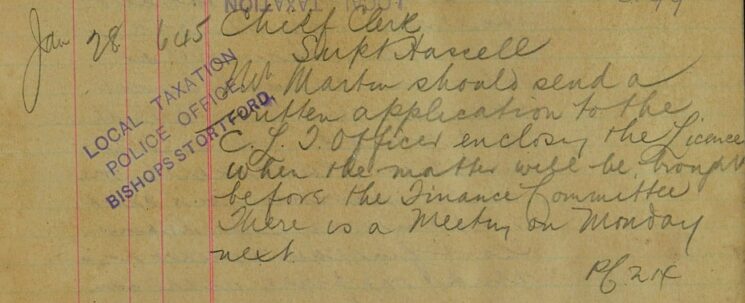 Jan 28 645 Chief Clerk
Supt Hassell
Mr Martin should send a
written application to the
C. L. T. Officer enclosing the Licence
when the matter will be brought
before the Finance Committee
There is a Meeting on Monday
next.
PC 214
LOCAL TAXATION
POLICE OFFICE
BISHOPS STORTFORD.